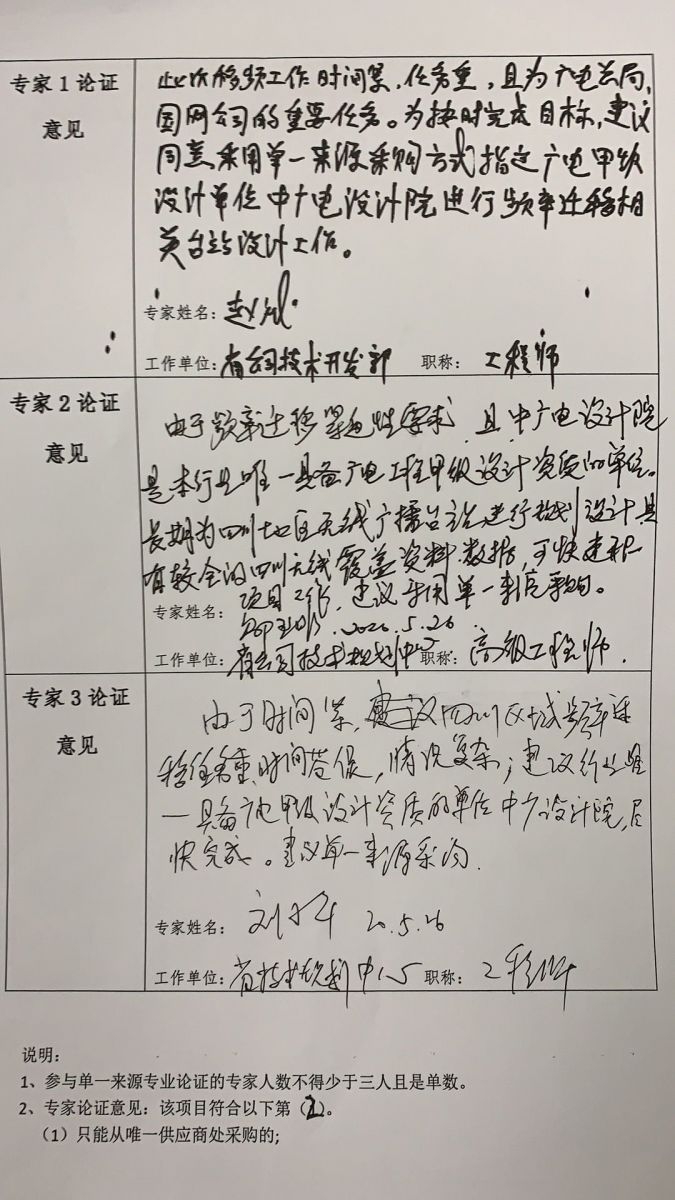 专家1论证
意见
此次移频工作时间紧,任务重,且为广电总局,
国网公司的重要任务。为按时完成目标,建议
同意采用单一来源采购方式指定广电甲级
设计单位中广电设计院进行频率迁移相
关台站设计工作。
专家姓名:
工作单位:省公司技术开发部 职称: 工程师
专家2论证
意见
由于频率迁移紧迫性要求,且中广电设计院
是本行业唯一具备广电工程甲级设计资质的单位。
长期为四川地区无线广播台站进行规划设计具
有较全的四川无线覆盖资料数据,可快速开
项目工作,建议采用单一来源采购。
专家姓名: 2020.5.26
工作单位:省公司技术规划中心 职称:高级工程师.
专家3论证
意见
由于时间紧,四川区域频率迁
移任务重,时间苍促,情况复杂;建议行业唯
一具备广电甲级设计资质的单位中广设计院,尽
快完成。建议单一来源采购.
专家姓名: 20.5.26
工作单位:省技术规划中心 职称: 工程师
说明:
1、参与单一来源专业论证的专家人数不得少于三人且是单数。
2、专家论证意见:该项目符合以下第( )。
(1)只能从唯一供应商处采购的;